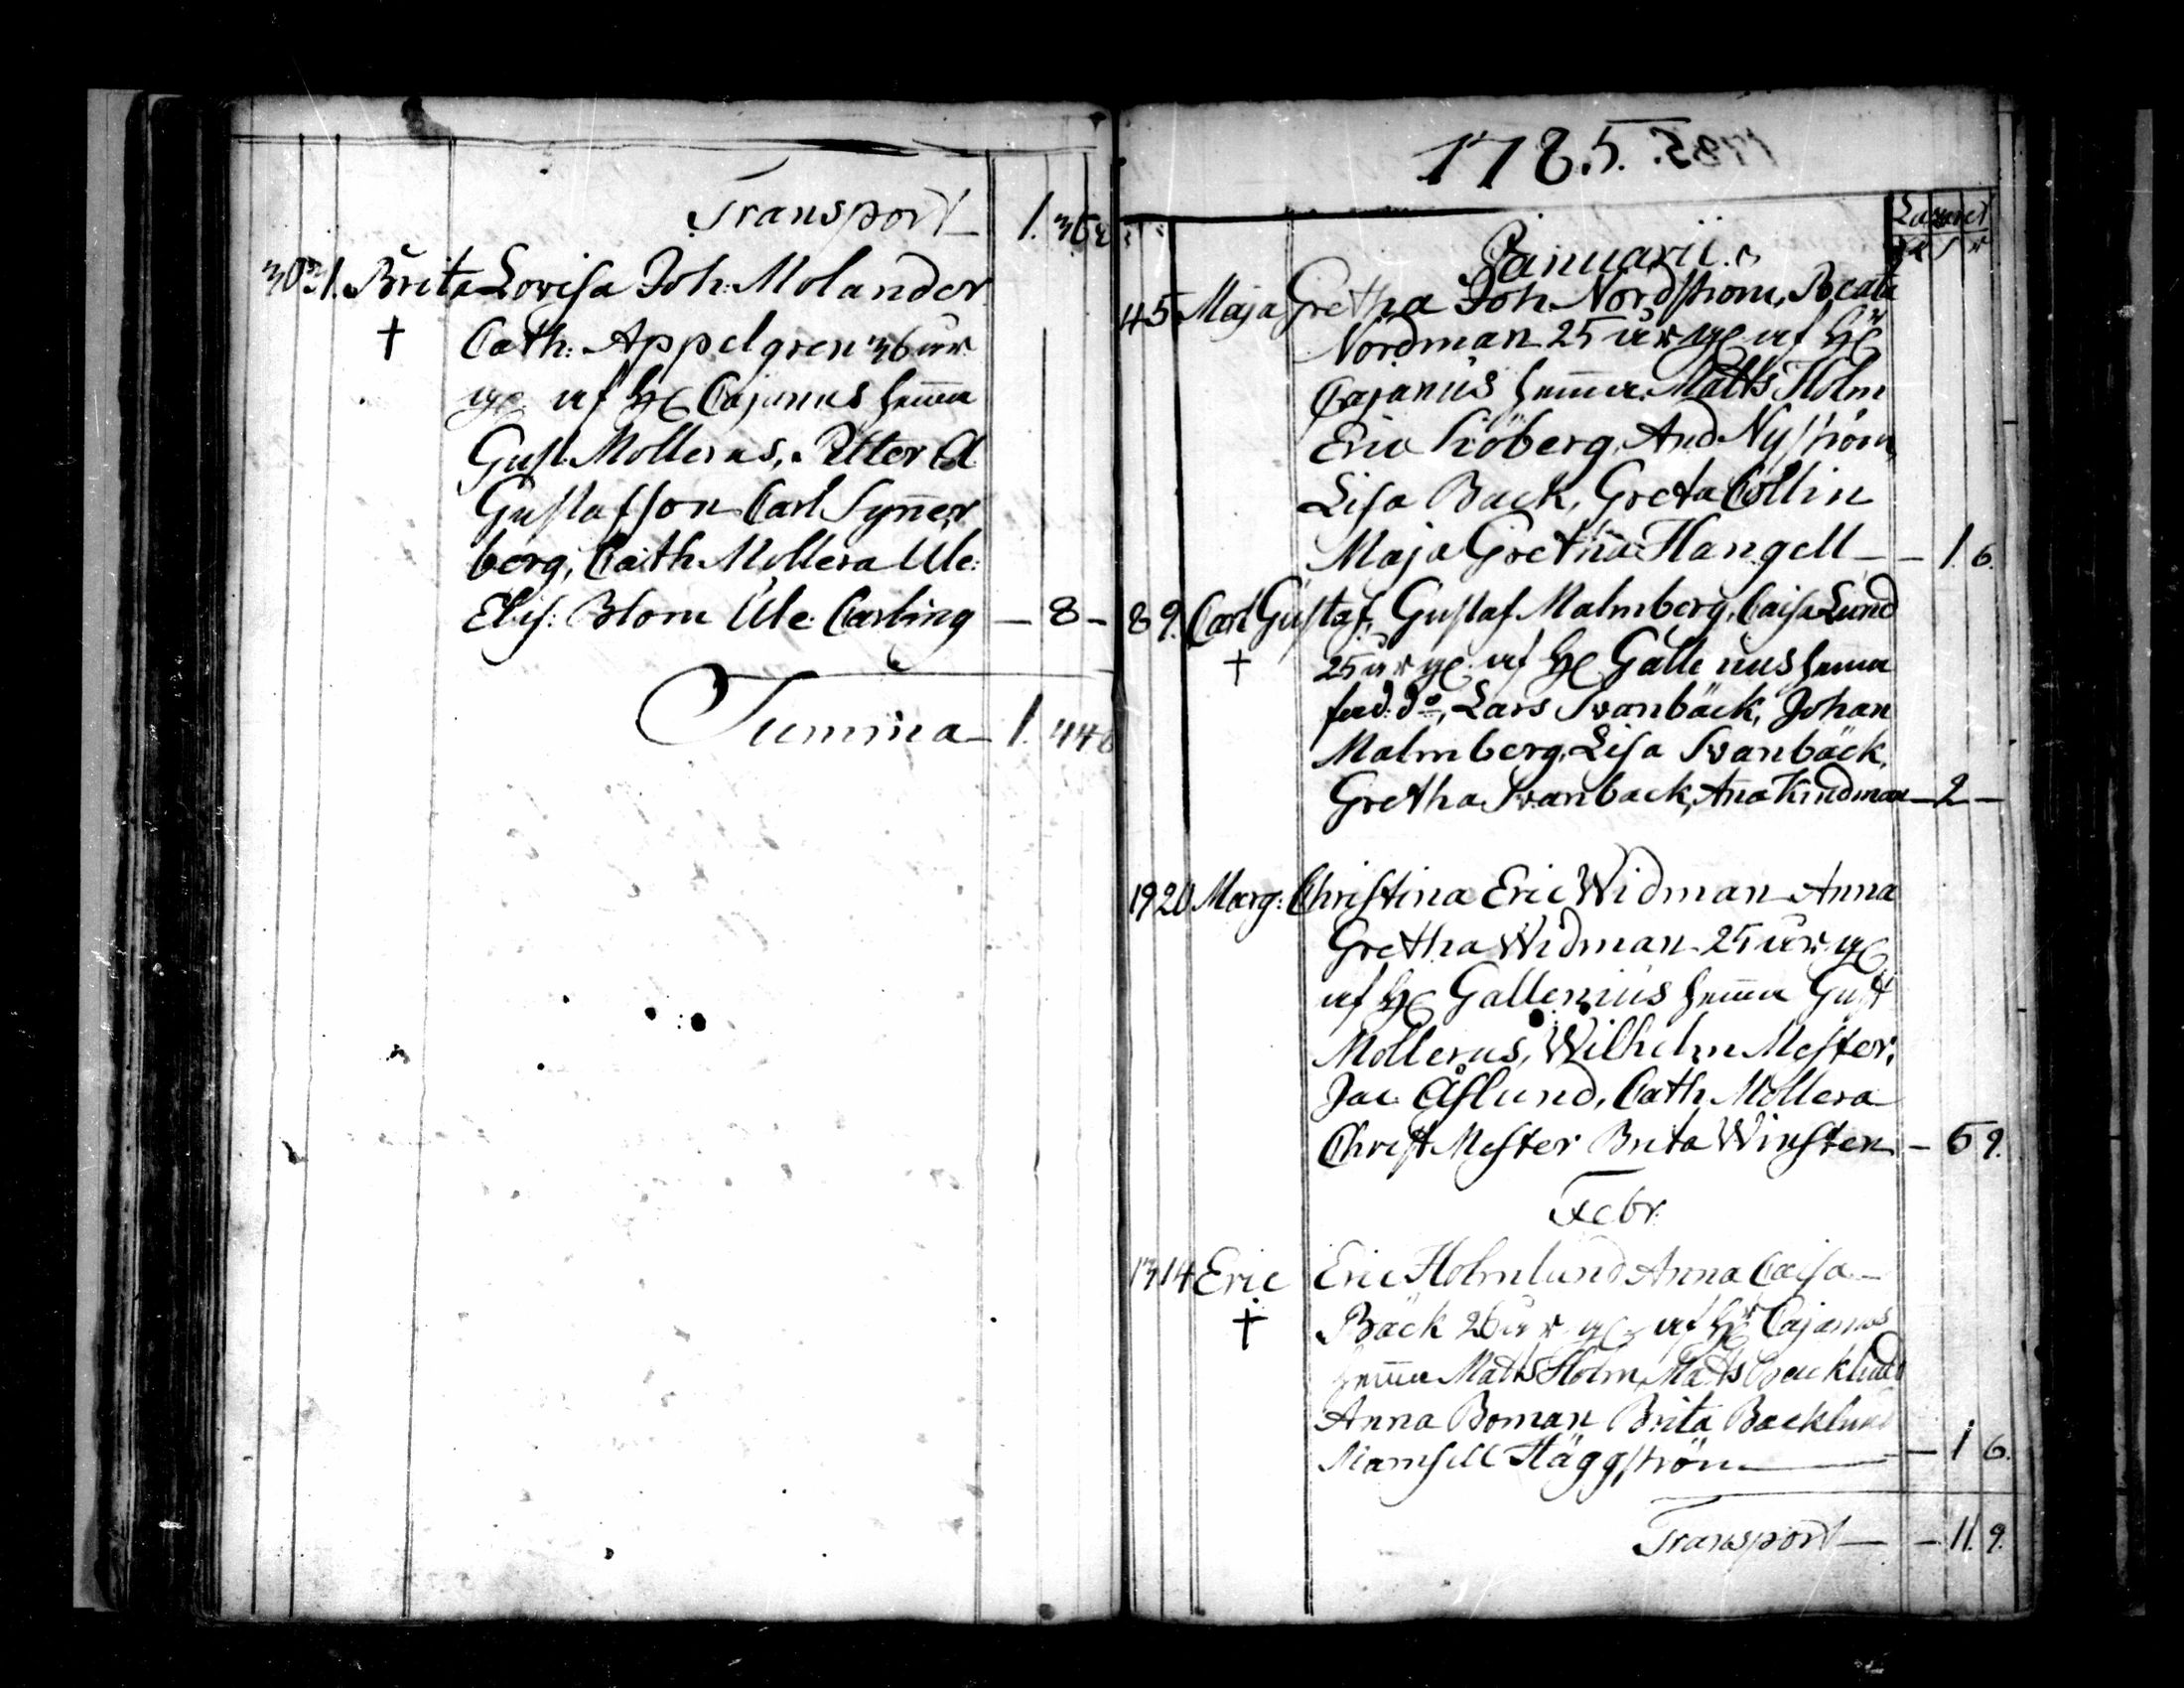 Transport 1. 36
30 31. Brita Lovisa Joh: Molander
† Cath: Appelgren 36 år
af H Cajanus hemma
Gust. Mollerus, Petter A
Gustafsson Carl Synner
berg, Cath Mollera Ule:
Elis: Blom Ule: Carling — 8 —
Summa 1. 44
1785.
Januarii
Lazaret
4 5. Maja Gretha Joh. Nordstrom, Beata
Nordman 25 år af H
Cajanus hemma Matts Holm
Eric Siöberg, And Nyström,
Lisa Back, Greta Collin
Maja Gretha Hangell — 1. 6.
8 9. Carl Gustaf, Gustaf Malmberg, Caisa Lund
† 25 år af H Gallenius hemma
do, Lars Svanbäck, Johan
Malmberg, Lisa Svanbäck,
Gretha Svanback, Ana Kindman — 2 —
19 20 Marg: Christina Eric Widman Anna
Gretha Widman 25 år
af H Gallenius hemma Gust
Mollerus, Wilhelm Mester,
Jac. Åslund, Cath Mollera
Christ Mester Brita Winsten — 6 9.
Febr.
13 14 Eric Eric Holmlund Anna Caisa
† Bäck 26 år af Hr Cajanus
hemma Matts Holm, Matts Backlund
Anna Boman Brita Backlund
Mamsell Häggström — 1 6.
Transport — 11. 9.